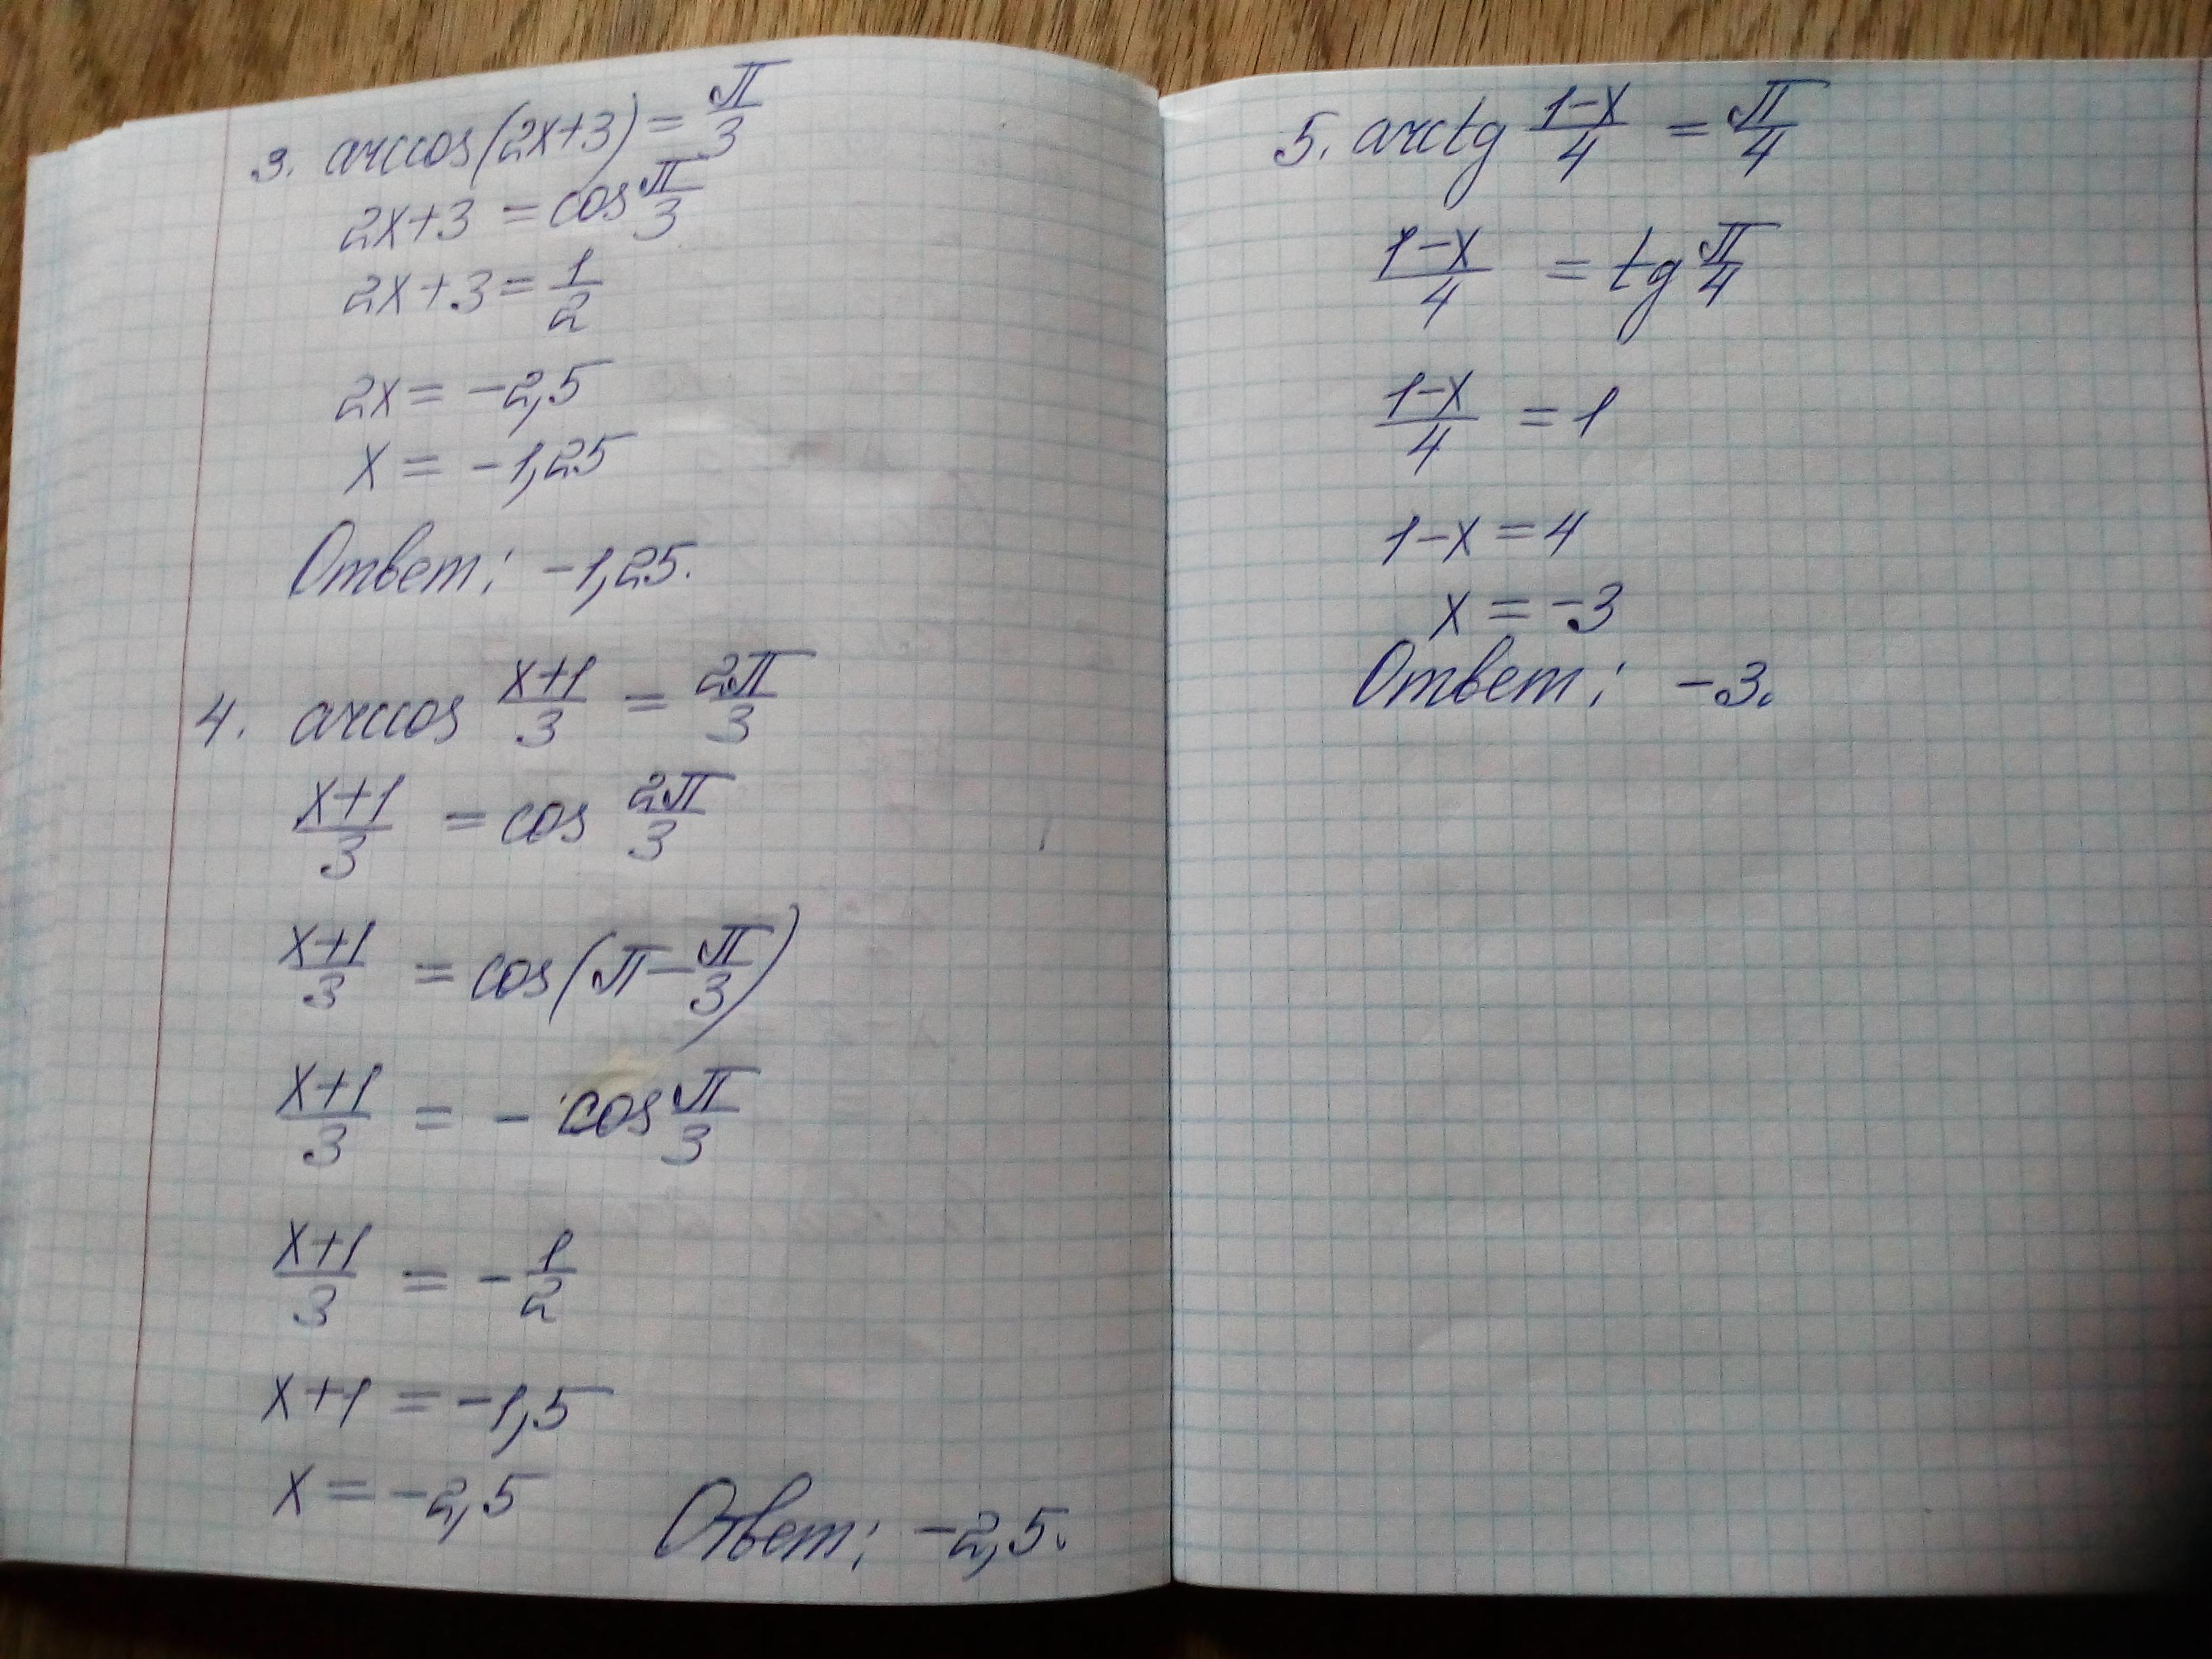 3. arccos(2x+3) = π/3
2x+3 = cos π/3
2x+3 = 1/2
2x = -2,5
x = -1,25
Ответ: -1,25.
4. arccos (x+1)/3 = 2π/3
(x+1)/3 = cos 2π/3
(x+1)/3 = cos(π - π/3)
(x+1)/3 = - cos π/3
(x+1)/3 = - 1/2
x+1 = -1,5
x = -2,5
Ответ: -2,5.
5. arctg (1-x)/4 = π/4
(1-x)/4 = tg π/4
(1-x)/4 = 1
1-x = 4
x = -3
Ответ: -3.